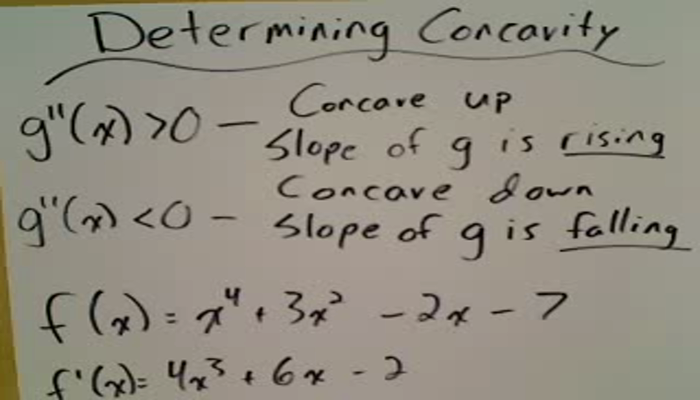 Determining Concavity
g''(x) > 0 — Concave up
Slope of g is rising
g''(x) < 0 – Concave down
Slope of g is falling
f(x) = x⁴ + 3x² - 2x - 7
f'(x) = 4x³ + 6x - 2